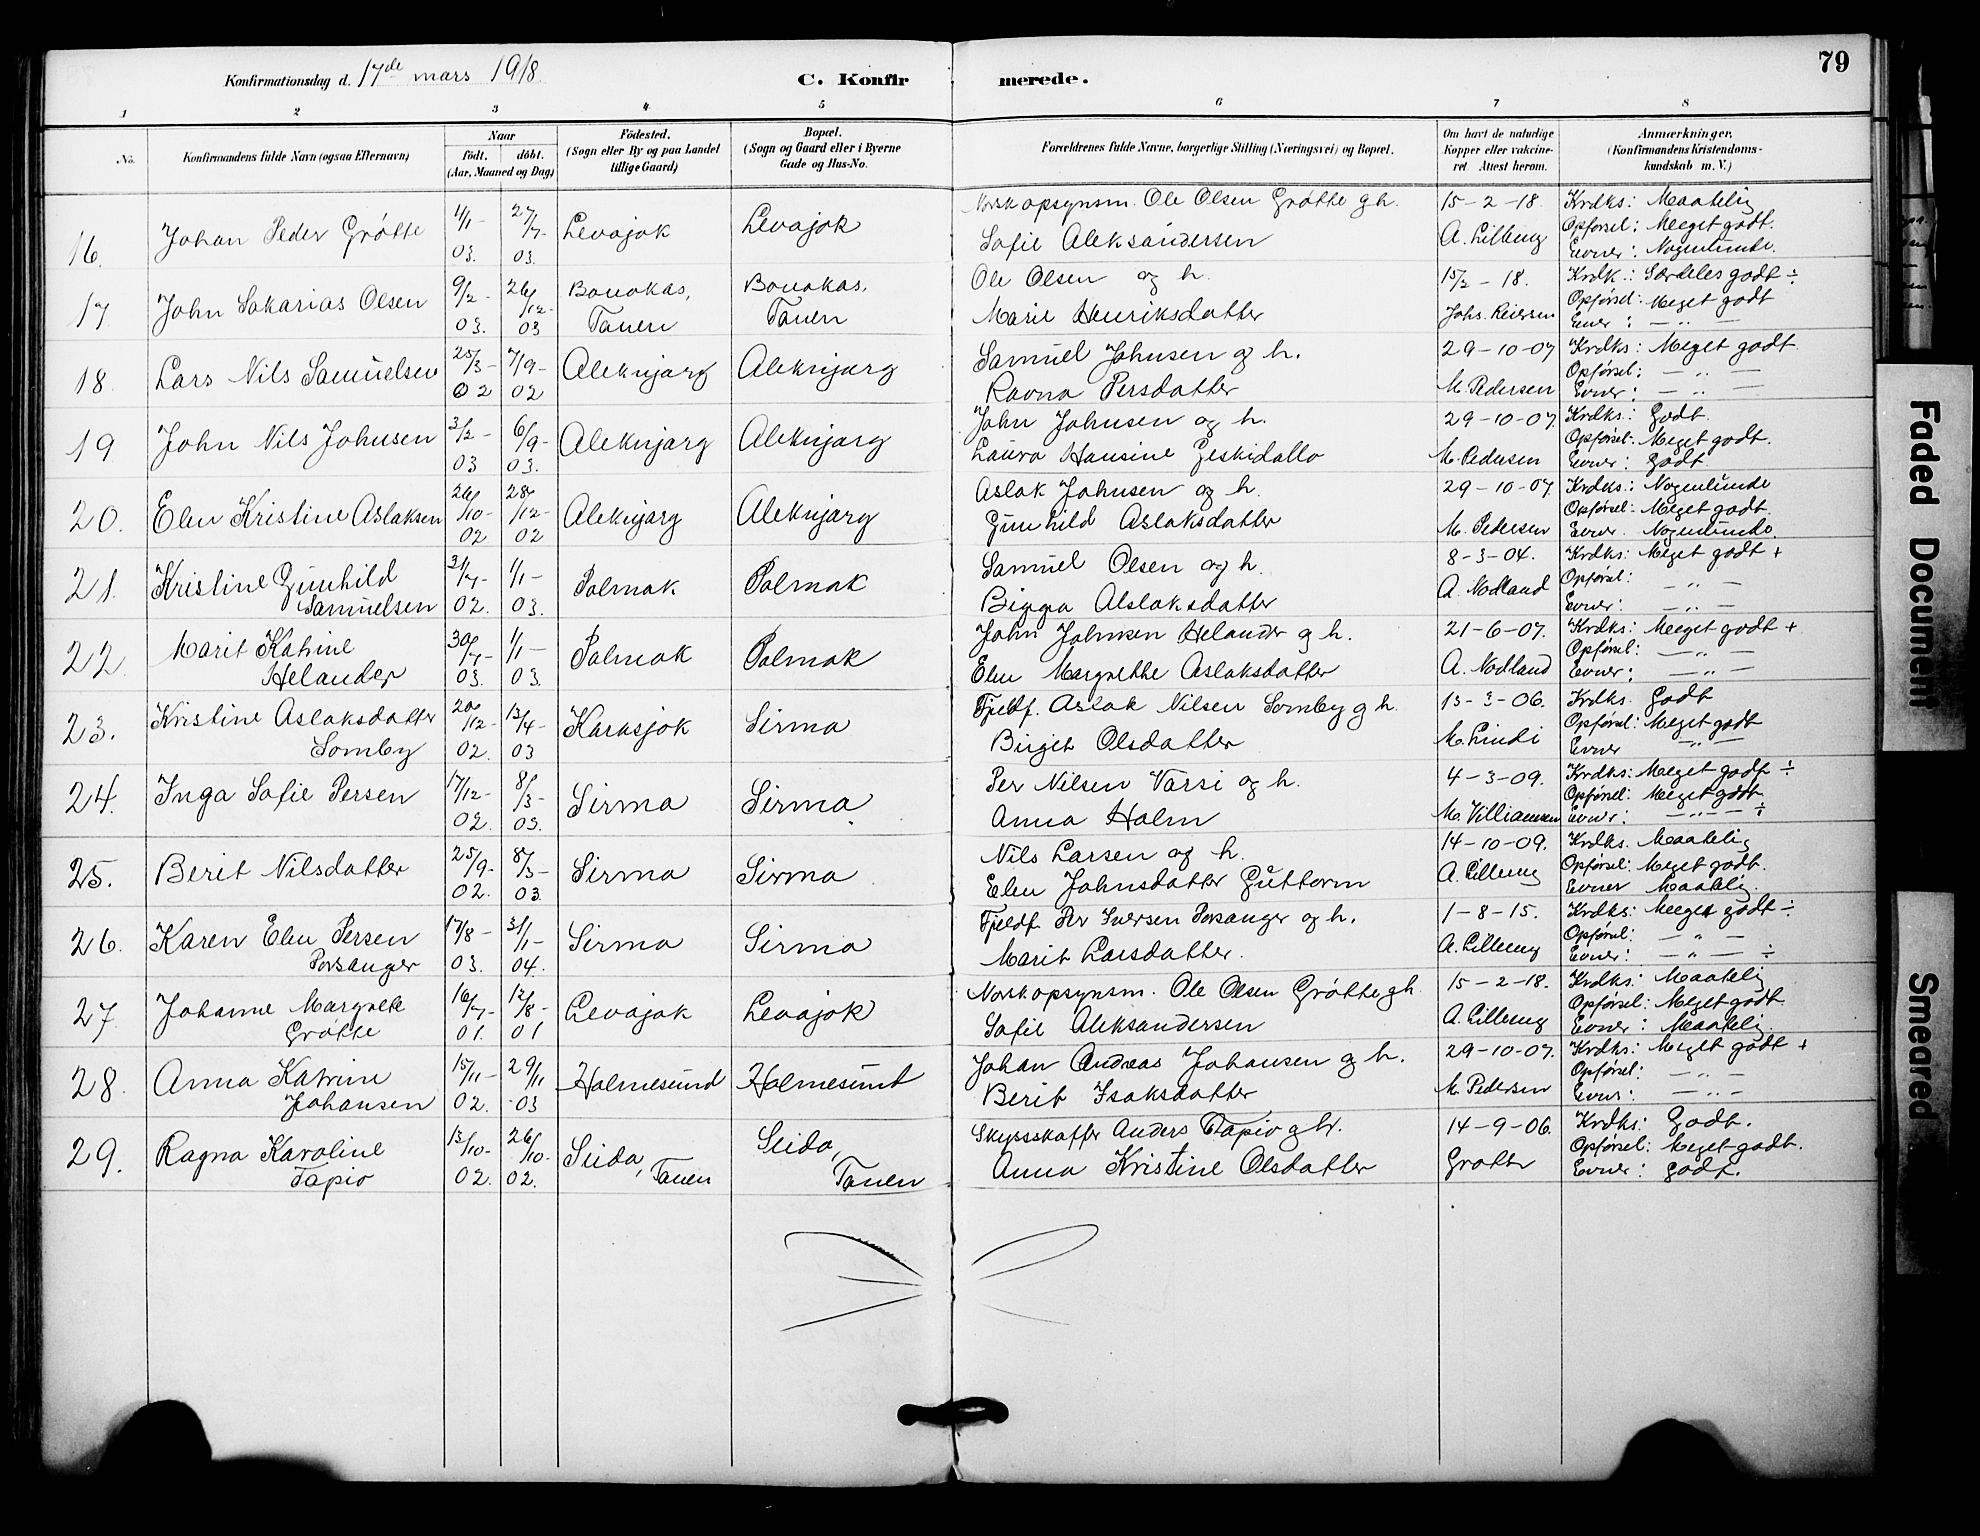 79
Konfirmationsdag d. 17de mars 1918.
C. Konfirmerede.
1 2 3 4 5 6 7 8
No.
Konfirmandens fulde Navn (ogsaa Efternavn)
Naar
födt. döbt.
(Aar, Maaned og Dag)
Födested.
(Sogn eller By og paa Landet
tillige Gaard)
Bopæl.
(Sogn og Gaard eller i Byerne
Gade og Hus-No.
Forældrenes fulde Navne, borgerlige Stilling (Næringsvei) og Bopæl.
Om havt de naturlige
Kopper eller vakcine-
ret. Attest herom.
Anmærkninger.
(Konfirmandens Kristendoms-
kundskab m. V.)
16. Johan Peder Grótte 03. 27/7- 03. Levajok Levajok Norsk opsynsm. Ole Olsen Grøtte g h. 15-2-18. Krdks: Maatelig
Sofie Aleksandersen A. Lilleng Opførsel: Meget godt.
Evner: Nogenlunde.
17. John Sakarias Olsen 9/2- 03. 26/12- 03 Bonakas, Tanen Bonakas, Tanen Ole Olsen og h. 15/2-18. Krdk.: Særdeles godt ÷
Marie Henriksdatter Johs. Reiersen Opførsel: Meget godt
Evner: — „ —
18. Lars Nils Samuelsen 25/3- 02 7/9- 02 Aleknjarg Aleknjarg Samuel Johnsen og h. 29-10-07 Krdks: Meget godt
Ravna Persdatter M. Pedersen Opførsel: — „ —
Evner: — „ —
19 John Nils Johnsen 3/2- 03 6/9- 03. Aleknjarg Aleknjarg John Johnsen og h. 29-10-07. Krdks: Godt.
Laura Hansine M. Pedersen Opførsel: Meget godt.
Evner: Godt.
20. Elen Kristine Aslaksen 26/10- 02 28/12- 02 Aleknjarg Aleknjarg Aslak Johnsen og h. 29-10-07. Krdks: Nogenlunde
Gunhild Aslaksdatter M. Pedersen Opførsel: Meget godt.
Evner. Nogenlunde.
21. Kristine Gunhild Samuelsen 31/7- 02. 1/1- 03. Polmak Polmak Samuel Olsen og h. 8-3-04. Krdks: Meget godt +
Bigga Alslaksdatter A. Nodland Opførsel: — „ —
Evner: — „ —
22. Marit Katrine Helander 30/7- 03. 1/1- 03. Polmak Polmak John Johnsen Helander g h. 21-6-07. Krdks: Meget godt +
Elen Margrethe Aslaksdatter A. Nodland Opførsel: — „ —
Evner: — „ —
23. Kristine Aslaksdatter Somby 20/12- 02. 13/4- 03 Karasjok Sirma Fjeldf. Aslak Nilsen Somby g h. 13-3-06. Krdks. Godt
Birget Olsdatter M. Lindi Opførsel: Meget godt
Evner — „ —
24. Inga Sofie Persen 17/12- 02. 8/3- 03. Sirma Sirma Per Nilsen Varsi og h. 4-3-09. Krdks: Meget godt ÷
Anna Holm M. Villiamsen Opførsel: Meget godt
Evner: — „ — ÷
25. Berit Nilsdatter 25/9- 02. 8/3- 03. Sirma Sirma Nils Larsen og h. 14-10-09. Krdks. Maatelig
Elen Johnsdatter Guttorm A. Lilleng Opførsel: Meget godt.
Evner Maatelig.
26. Karen Elen Persen Porsanger 17/8- 03. 31/1- 04. Sirma Sirma Fjeldf. Per Iversen Porsanger og h. 1-8-15. Krdks: Meget godt ÷
Marit Larsdatter. A. Lilleng Opførsel: — „ —
Evner: — „ — ÷
27. Johanne Margrete Grøtte 16/7- 01. 12/8- 01 Levajok Levajok Norsk opsynsm. Ole Olsen Grøtte g h. 15-2-18. Krdks: Maatelig
Sofie Aleksandersen A. Lilleng Opførsel: Meget godt
Evner: Maatelig.
28. Anna Katrine Johansen 15/11- 02. 29/11 03 Holmesund Holmesund Johan Andreas Johansen g h. 29-10-07. Krdks: Meget godt +
Berit Isaksdatter M. Pedersen Opførsel: — „ —
Evner: — „ —
29. Ragna Karoline Tapio 13/10- 02. 26/10- 02. Seida, Tanen Seida, Tanen Skyssskaffer Anders Tapio g h. 14-9-06. Krdks: Godt.
Anna Kristine Olsdatter Grøtte Opførsel: Meget godt.
Evner: Godt.
Faded Document
Smeared